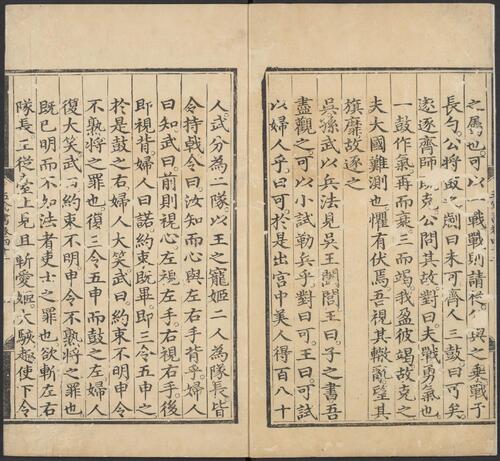 之屬也可以一戰戰則請從公與之乘戰于
長勺公將鼓之劌曰未可齊人三鼓曰可矣
遂逐齊師既克公問其故對曰夫戰勇氣也
一鼓作氣再而衰三而竭我盈彼竭故克之
夫大國難測也懼有伏焉吾視其轍亂望其
旗靡故逐之
吳孫武以兵法見吳王闔閭王曰子之書吾
盡觀之可以小試勒兵乎對曰可王曰可試
以婦人乎曰可於是出宮中美人得百八十
人武分為二隊以王之寵姬二人為隊長皆
令持戟令曰汝知而心與左右手背乎婦人
曰知武曰前則視心左視左手右視右手後
即視背婦人曰諾約束既畢即三令五申之
於是鼓之右婦人大笑武曰約束不明申令
不熟將之罪也復三令五申而鼓之左婦人
復大笑武曰約束不明申令不熟將之罪也
既已明而不如法者吏士之罪也欲斬左右
隊長王從臺上見且斬愛姬大駭趣使下令